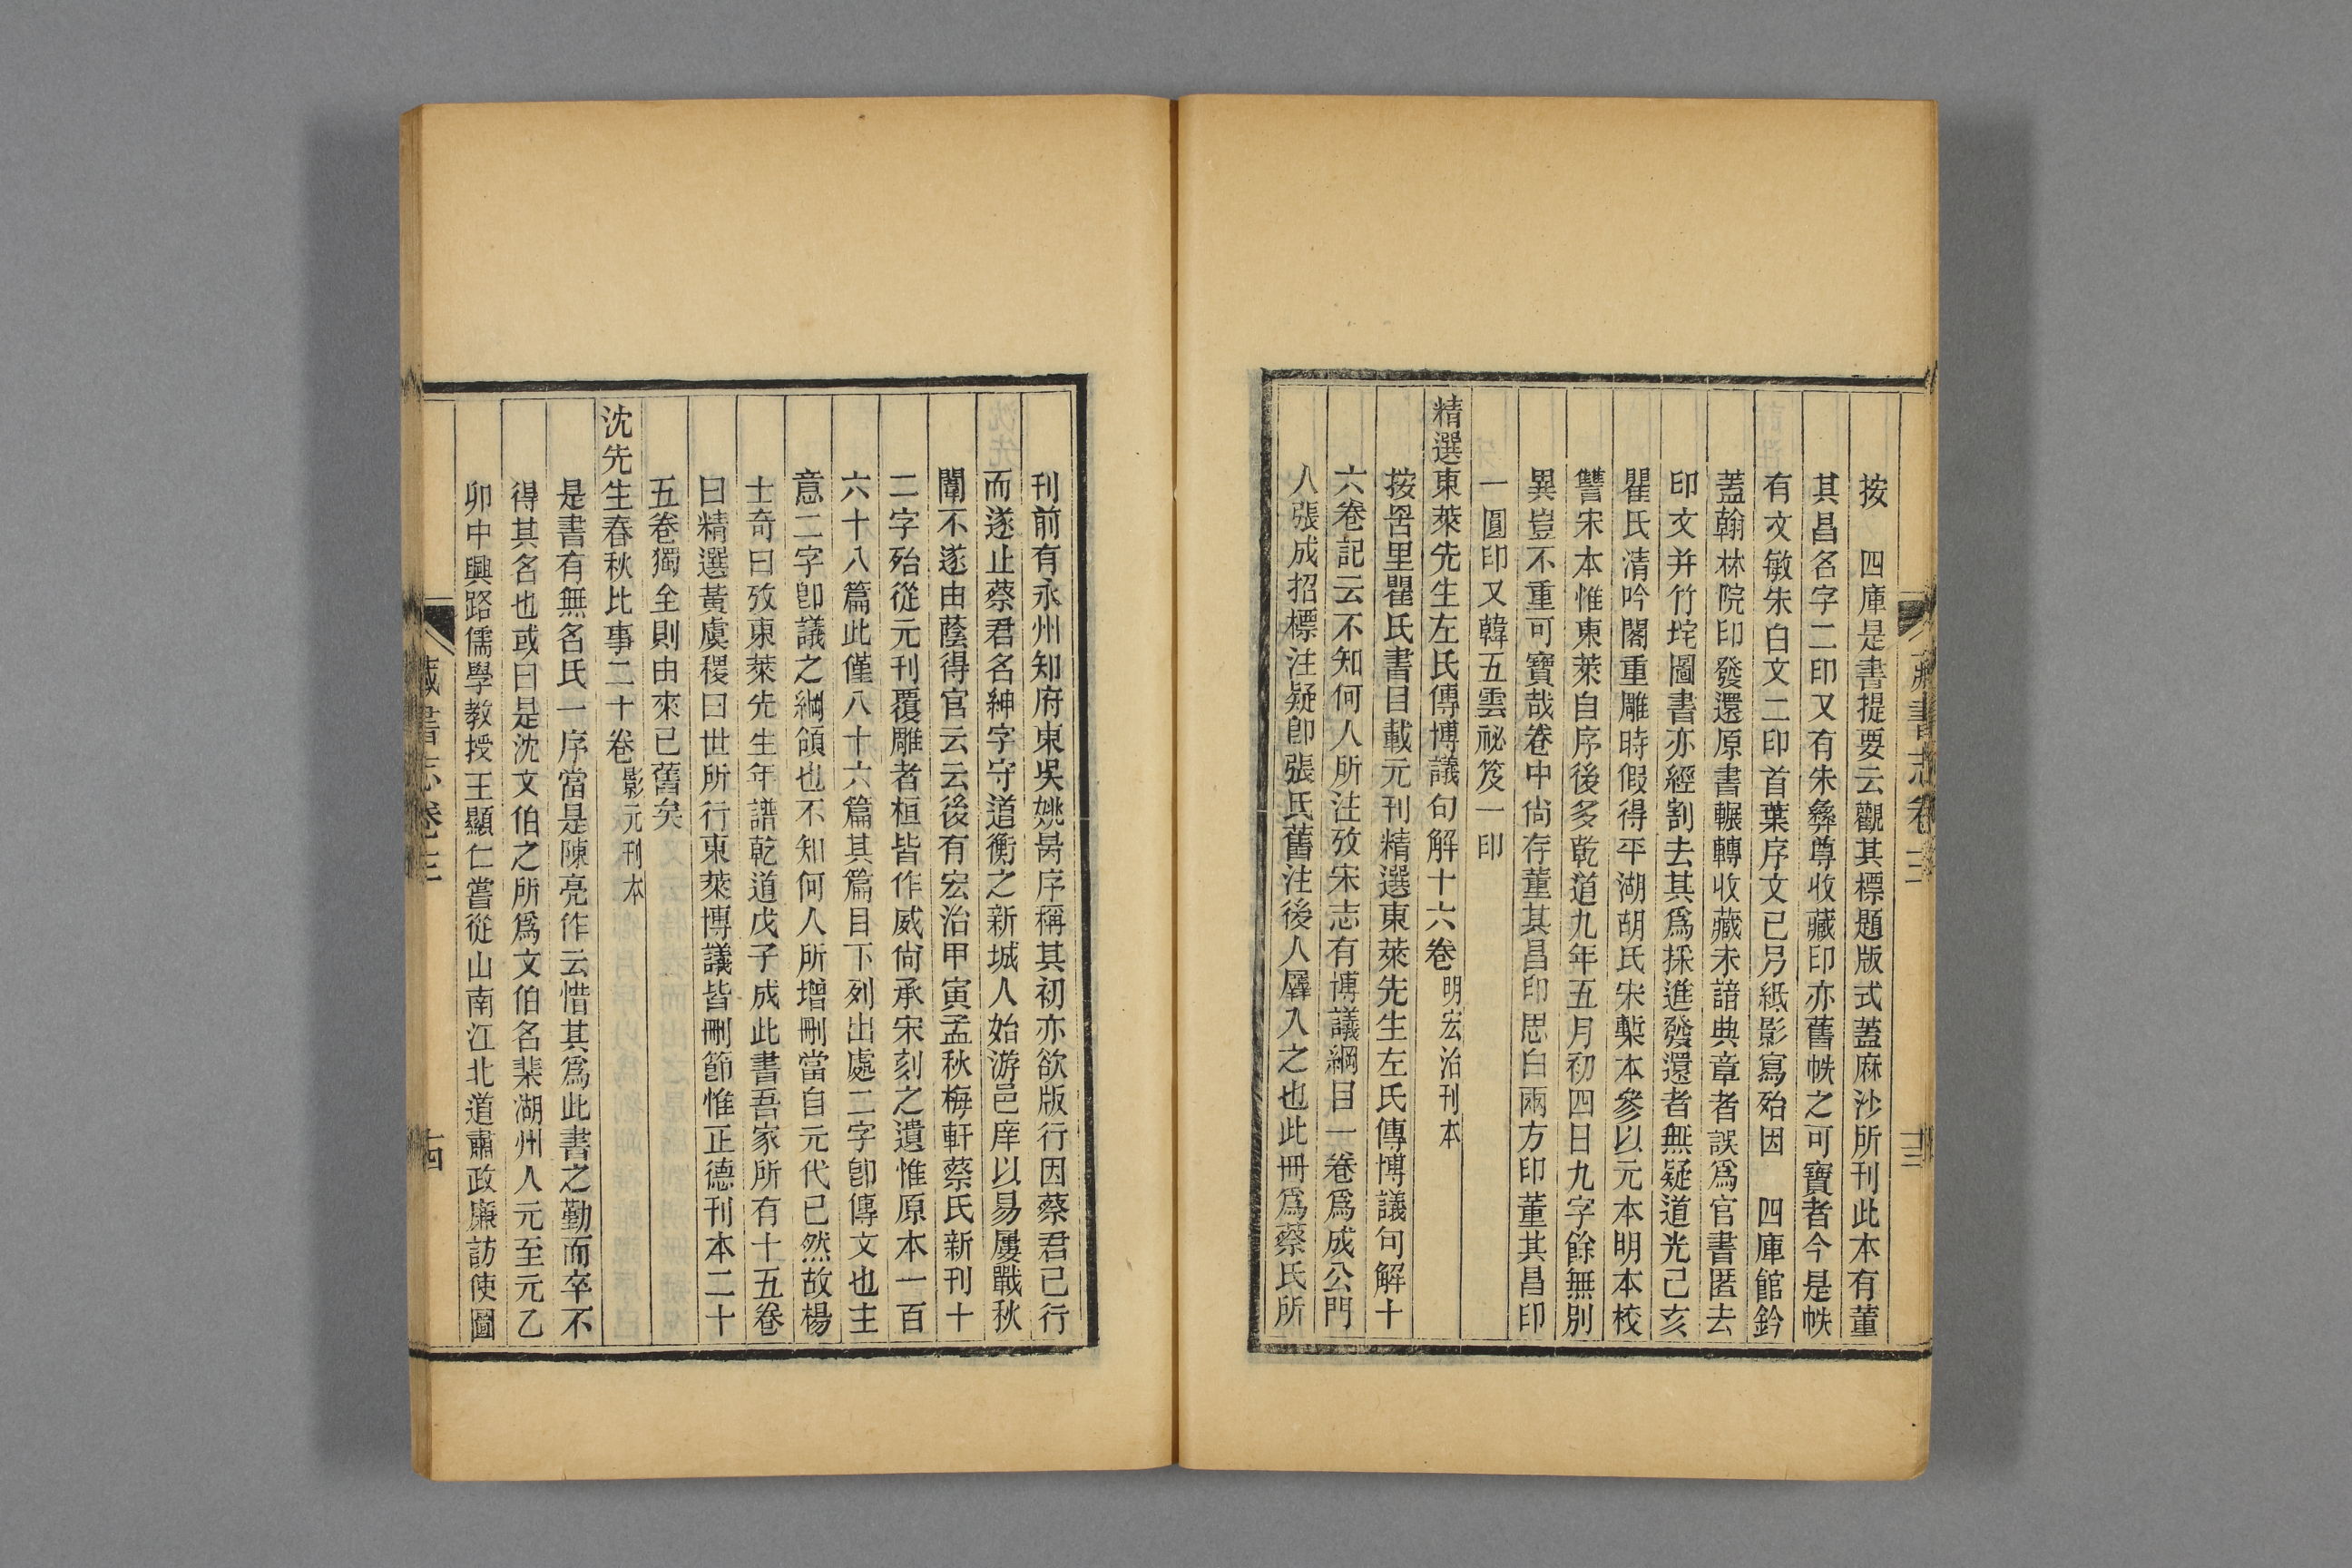 按　四庫是書提要云觀其標題版式蓋麻沙所刊此本有董
其昌名字二印又有朱彝尊收藏印亦舊帙之可寶者今是帙
有文敏朱白文二印首葉序文已另紙影寫殆因　四庫館鈐
蓋翰林院印發還原書輾轉收藏未諳典章者誤爲官書匿去
印文并竹垞圖書亦經割去其爲採進發還者無疑道光己亥
瞿氏清吟閣重雕時假得平湖胡氏宋槧本參以元本明本校
讐宋本惟東萊自序後多乾道九年五月初四日九字餘無別
異豈不重可寶哉卷中尙存董其昌印思白兩方印董其昌印
一圓印又韓五雲祕笈一印
精選東萊先生左氏傳博議句解十六卷明宏治刊本
按罟里瞿氏書目載元刊精選東萊先生左氏傳博議句解十
六卷記云不知何人所注攷宋志有博議綱目一卷爲成公門
人張成招標注疑卽張氏舊注後人羼入之也此冊爲蔡氏所
藏書志卷三
十三
刊前有永州知府東吳姚昺序稱其初亦欲版行因蔡君已行
而遂止蔡君名紳字守道衡之新城人始游邑庠以易屢戰秋
闈不遂由蔭得官云云後有宏治甲寅孟秋梅軒蔡氏新刊十
二字殆從元刊覆雕者桓皆作威尙承宋刻之遺惟原本一百
六十八篇此僅八十六篇其篇目下列出處二字卽傳文也主
意二字卽議之綱領也不知何人所增刪當自元代已然故楊
士奇曰攷東萊先生年譜乾道戊子成此書吾家所有十五卷
曰精選黃虞稷曰世所行東萊博議皆刪節惟正德刊本二十
五卷獨全則由來已舊矣
沈先生春秋比事二十卷影元刊本
是書有無名氏一序當是陳亮作云惜其爲此書之勤而卒不
得其名也或曰是沈文伯之所爲文伯名棐湖州人元至元乙
卯中興路儒學教授王顯仁嘗從山南江北道肅政廉訪使圖
藏書志卷三
十四